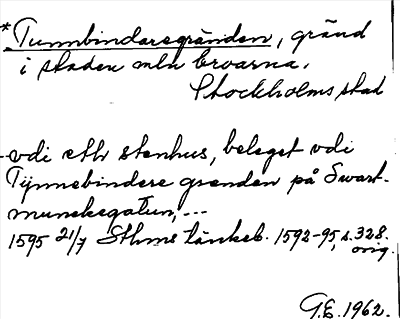 *Tunnbindaregränden, gränd
i staden mln broarna.
Stockholms stad
vdi eth stenhus, beleget vdi
Tÿnnebindere grenden på Swart-
munckegatun, ---
1595 21/7 Sthms tänkeb. 1592-95, s. 328.
orig.
G.E. 1962.